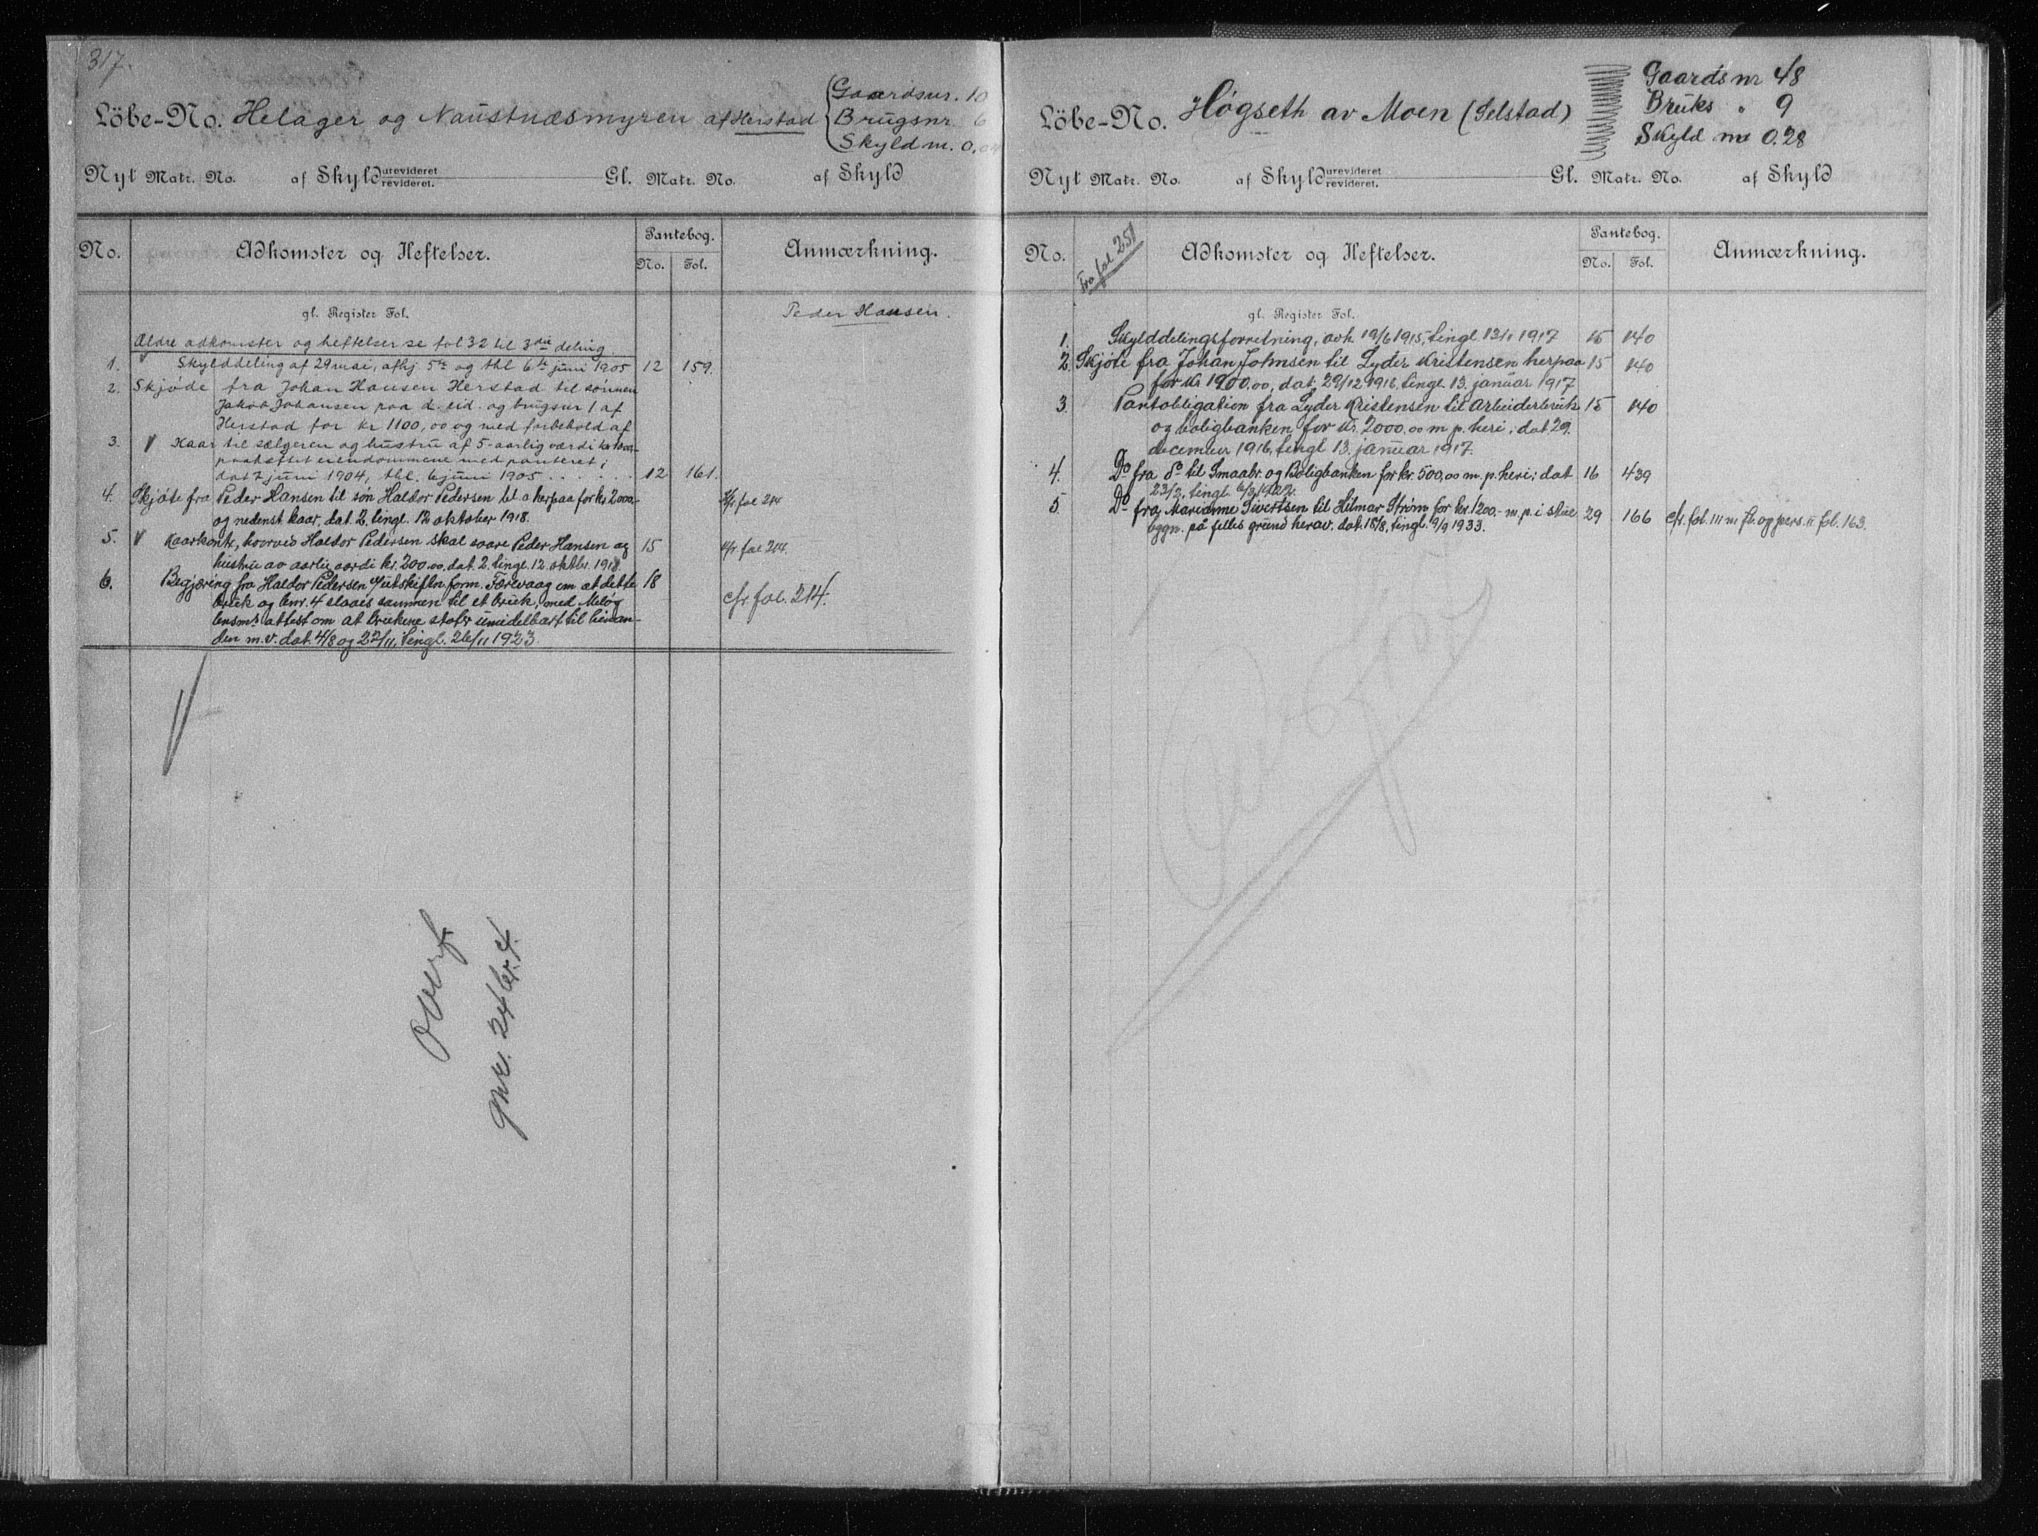 317.
Löbe-No. Helager og Naustnæsmyren af Herstad { Gaardsnr. 10
Brugsnr. 6
Skyld m. 0.04
Nyt Matr. No. af Skyld urevideret revideret. Gl. Matr. No. af Skyld
No. Adkomster og Heftelser. Pantebog. No. Fol. Anmærkning.
gl. Register Fol. Peder Hansen.
Ældre adkomster og heftelser se fol 32 til 3die deling
1. V Skylddeling af 29 mai, afhj. 5te og thl 6te juni 1905 12 159.
2. Skjøde fra Johan Hansen Herstad til sønnen
Jakob Johansen paa d. eid. og brugsnr 1 af
Herstad for kr 1100,00 og med forbehold af
3. V Kaar til sælgeren og hustru af 5-aarlig værdi kr
eiendommene med panteret;
dat 7 juni 1904, thl. 6 juni 1905 . . . . . . 12 161.
4. Skjøte fra Peder Hansen til søn Haldor Pedersen bl a herpaa for kr. 2000.- cfr fol 214
og nedenst kaar, dat. 2. tingl. 12 oktober 1918.
5. V Kaarkontr, hvorved Haldor Pedersen skal svare Peder Hansen og 15 cfr. fol 214.
hustru av aarlig værdi kr. 200.00, dat. 2. tingl. 12. oktbr. 1918.
6. Begjæring fra Haldor Pedersen t/utskiftn form. Færevaag om at dette 18 cfr fol. 214.
bruk og bnr. 4 slaaes sammen til et bruk, med Meløy
lensms attest om at brukene støter umidelbart til hinan-
den m.v. dat. 4/8 og 22/11, tingl. 26/11 1923.
Overf.
gnr. 24 br. 4.
Löbe-No. Høgseth av Moen (Selstad) Gaards nr 48
Bruks " 9
Skyld mk 0.28
Nyt Matr. No. af Skyld urevideret revideret. Gl. Matr. No. af Skyld
No. Fra fol 251 Adkomster og Heftelser. Pantebog. No. Fol. Anmærkning.
gl. Register Fol.
1. Skylddelingsforretning, avh 19/6 1915, tingl 13/1 1917 15 140
2. Skjøte fra Johan Johnsen til Lyder Kristensen herpaa 15 140
for kr 1900.00, dat. 29/12 1916, tingl. 13. januar 1917
3. Pantobligation fra Lyder Kristensen til Arbeiderbruk 15 140
og boligbanken for kr. 2000.00 m p. heri; dat 29.
december 1916, tingl 13. januar 1917.
4. Do fra do til Smaabr. og Boligbanken for kr. 500,00 m. p. heri; dat 16 439
23/2, tingl. 6/3 1922.
5. Do fra Marianne Sivertsen til Hilmar Strøm for kr. 1200.- m. p. i 29 166 cfr. fol. 111 m fl. og pers. II fol. 163.
bygn. på felles grund herav. dat. 18/8, tingl. 9/9 1933.